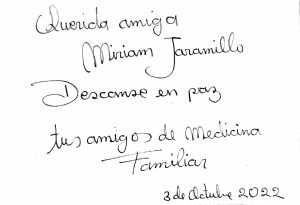 Querida amiga
Miriam Jaramillo
Descanse en paz
tus amigos de Medicina
Familiar
3 de Octubre 2022